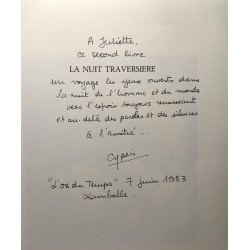 A Juliette,
ce second livre
LA NUIT TRAVERSIERE
Un voyage les yeux ouverts dans
la nuit de l'homme et du monde
vers l'espoir toujours renaissant
et au-delà des paroles et des silences
à l'amitié...
"L'ox du Temps" 7 juin 1983
Lamballe.